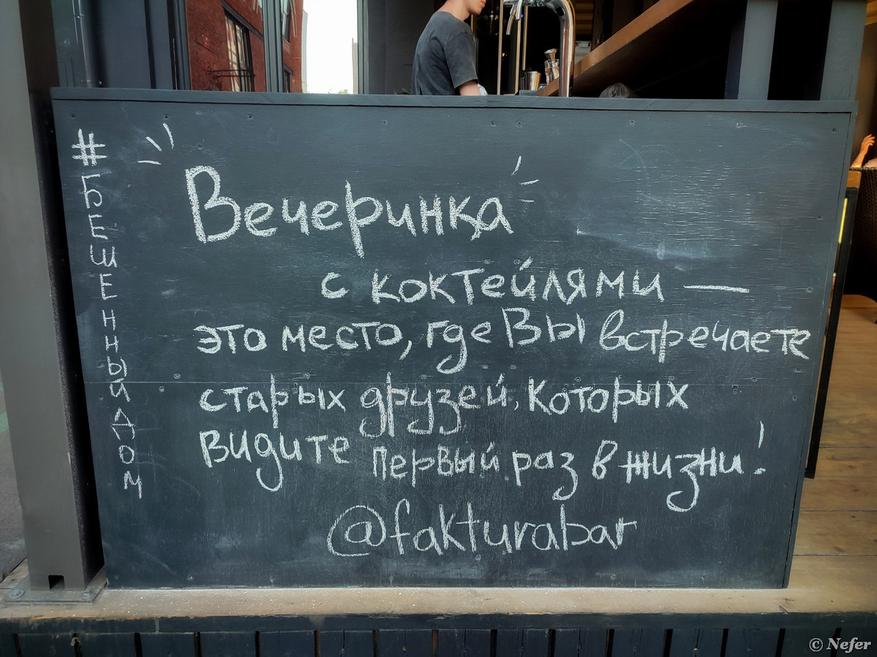 #БЕШЕННЫЙДОМ
Вечеринка
с коктейлями —
это место, где Вы встречаете
старых друзей, которых
видите первый раз в жизни!
@fakturabar
© Nefer